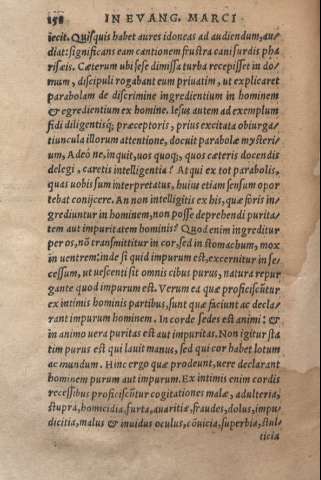 158 IN EVANG. MARCI
iecit. Quisquis habet aures idoneas ad audiendum, au/
diat: significans eam cantionem frustra cani surdis pha
risæis. Cæterum ubi sese dimissa turba recepisset in do/
mum, discipuli rogabant eum priuatim, ut explicaret
parabolam de discrimine ingredientium in hominem
& egredientium ex homine. Iesus autem ad exemplum
fidi diligentisq; præceptoris, prius excitata obiurga/
tiuncula illorum attentione, docuit parabolæ mysteri/
um, Adeò ne, inquit, uos quoq;, quos cæteris docendis
delegi, caretis intelligentia? At qui ex tot parabolis,
quas uobis sum interpretatus, huius etiam sensum opor
tebat conijcere. An non intelligitis ex his, quæ foris in/
grediuntur in hominem, non posse deprehendi purita/
tem aut impuritatem hominis? Quod enim ingreditur
per os, nõ transmittitur in cor, sed in stomachum, mox
in uentrem: inde si quid impurum est, excernitur in se/
cessum, ut uescenti sit omnis cibus purus, natura repur
gante quod impurum est. Verum ea quæ proficiscũtur
ex intimis hominis partibus, sunt quæ faciunt ac decla/
rant impurum hominem. In corde sedes est animi: &
in animo uera puritas est aut impuritas. Non igitur sta
tim purus est qui lauit manus, sed qui cor habet lotum
ac mundum. Hinc ergo quæ prodeunt, uere declarant
hominem purum aut impurum. Ex intimis enim cordis
recessibus proficiscũtur cogitationes malæ, adulteria,
stupra, homicidia, furta, auaritiæ, fraudes, dolus, impu/
dicitia, malus & inuidus oculus, cõuicia, superbia, stul/
ticia